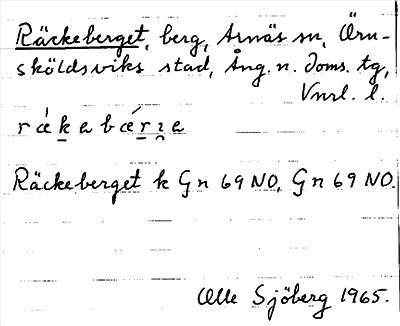 Räckeberget, berg, Arnäs sn, Örn-
sköldsviks stad, Ång. n. doms. tg,
Vnrl. l.
rǽkabǽrɪa
Räckeberget k Gn 69 NO, Gn 69 NO.
Olle Sjöberg 1965.